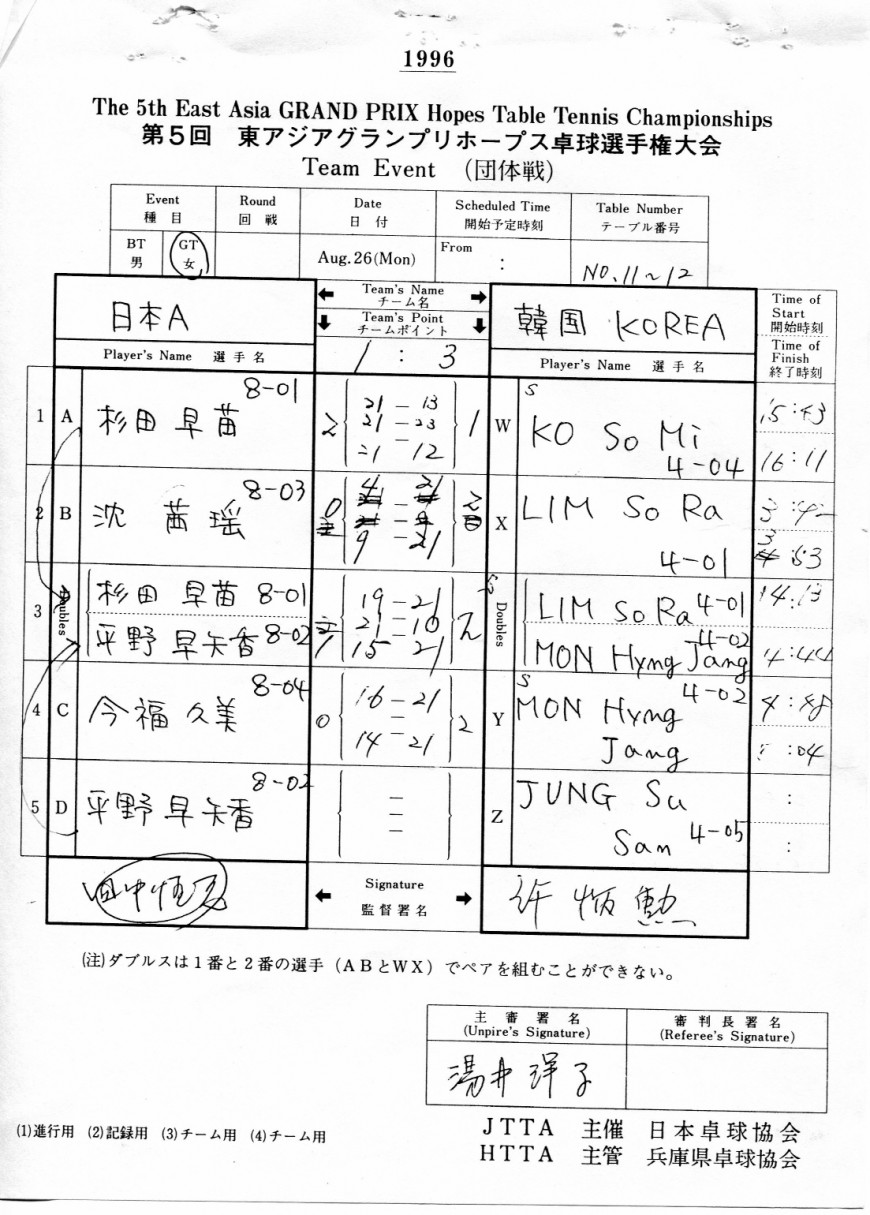 1996
The 5th East Asia GRAND PRIX Hopes Table Tennis Championships
第5回 東アジアグランプリホープス卓球選手権大会
Team Event (団体戦)
Event 種目 Round 回戦 Date 日付 Scheduled Time 開始予定時刻 Table Number テーブル番号
BT 男 GT 女 Aug.26(Mon) From : NO. 11~12
日本A
Team's Name チーム名
韓国 KOREA
Team's Point チームポイント
1 : 3
Time of Start 開始時刻
Time of Finish 終了時刻
Player's Name 選手名
Player's Name 選手名
1 A 杉田 早苗 8-01
2
21 — 13
21 — 23
21 12
1
W S KO So Mi 4-04
15:43
16:11
2 B 沈 茜 瑶 8-03
0
4 21
9 — 21
2
X LIM So Ra 4-01
3 53
3 Doubles 杉田 早苗 8-01
平野 早矢香 8-02
1
19 — 21
21 — 10
15 21
2
S Doubles LIM So Ra 4-01
MON Hyng Jang 4-02
14:13
14:44
4 C 今福 久美 8-04
0
16 — 21
—
14 — 21
2
Y S MON Hyng Jang 4-02
: 04
5 D 平野 早矢香 8-02
—
—
—
Z JUNG Su San 4-05
:
:
Signature 監督署名
許 炳 勳
(注)ダブルスは1番と2番の選手(ABとWX)でペアを組むことができない。
主審署名 (Unpire's Signature)
審判長署名 (Referee's Signature)
湯井 洋子
(1)進行用 (2)記録用 (3)チーム用 (4)チーム用
JTTA 主催 日本卓球協会
HTTA 主管 兵庫県卓球協会